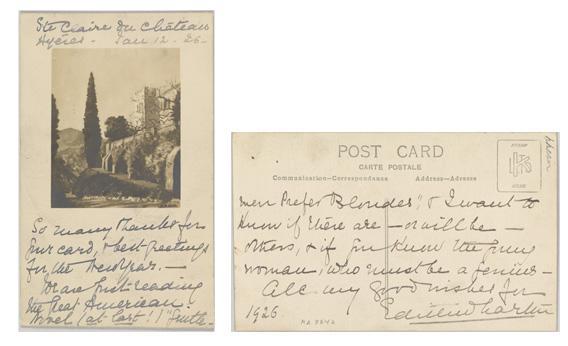 Ste Claire du Château
Hyères - Jan 12 - 26 -
So many thanks for
your card, & best greetings
for the New Year. -
We are just reading
the Great American
Novel (at last!) "Gentle-
POST CARD
CARTE POSTALE
Communication-Correspondance Address-Adresse
men Prefer Blondes", & I want to
know if there are - or will be -
others, & if you know the young
woman, who must be a genius -
All my good wishes for
1926 Edith Wharton
MA 3842